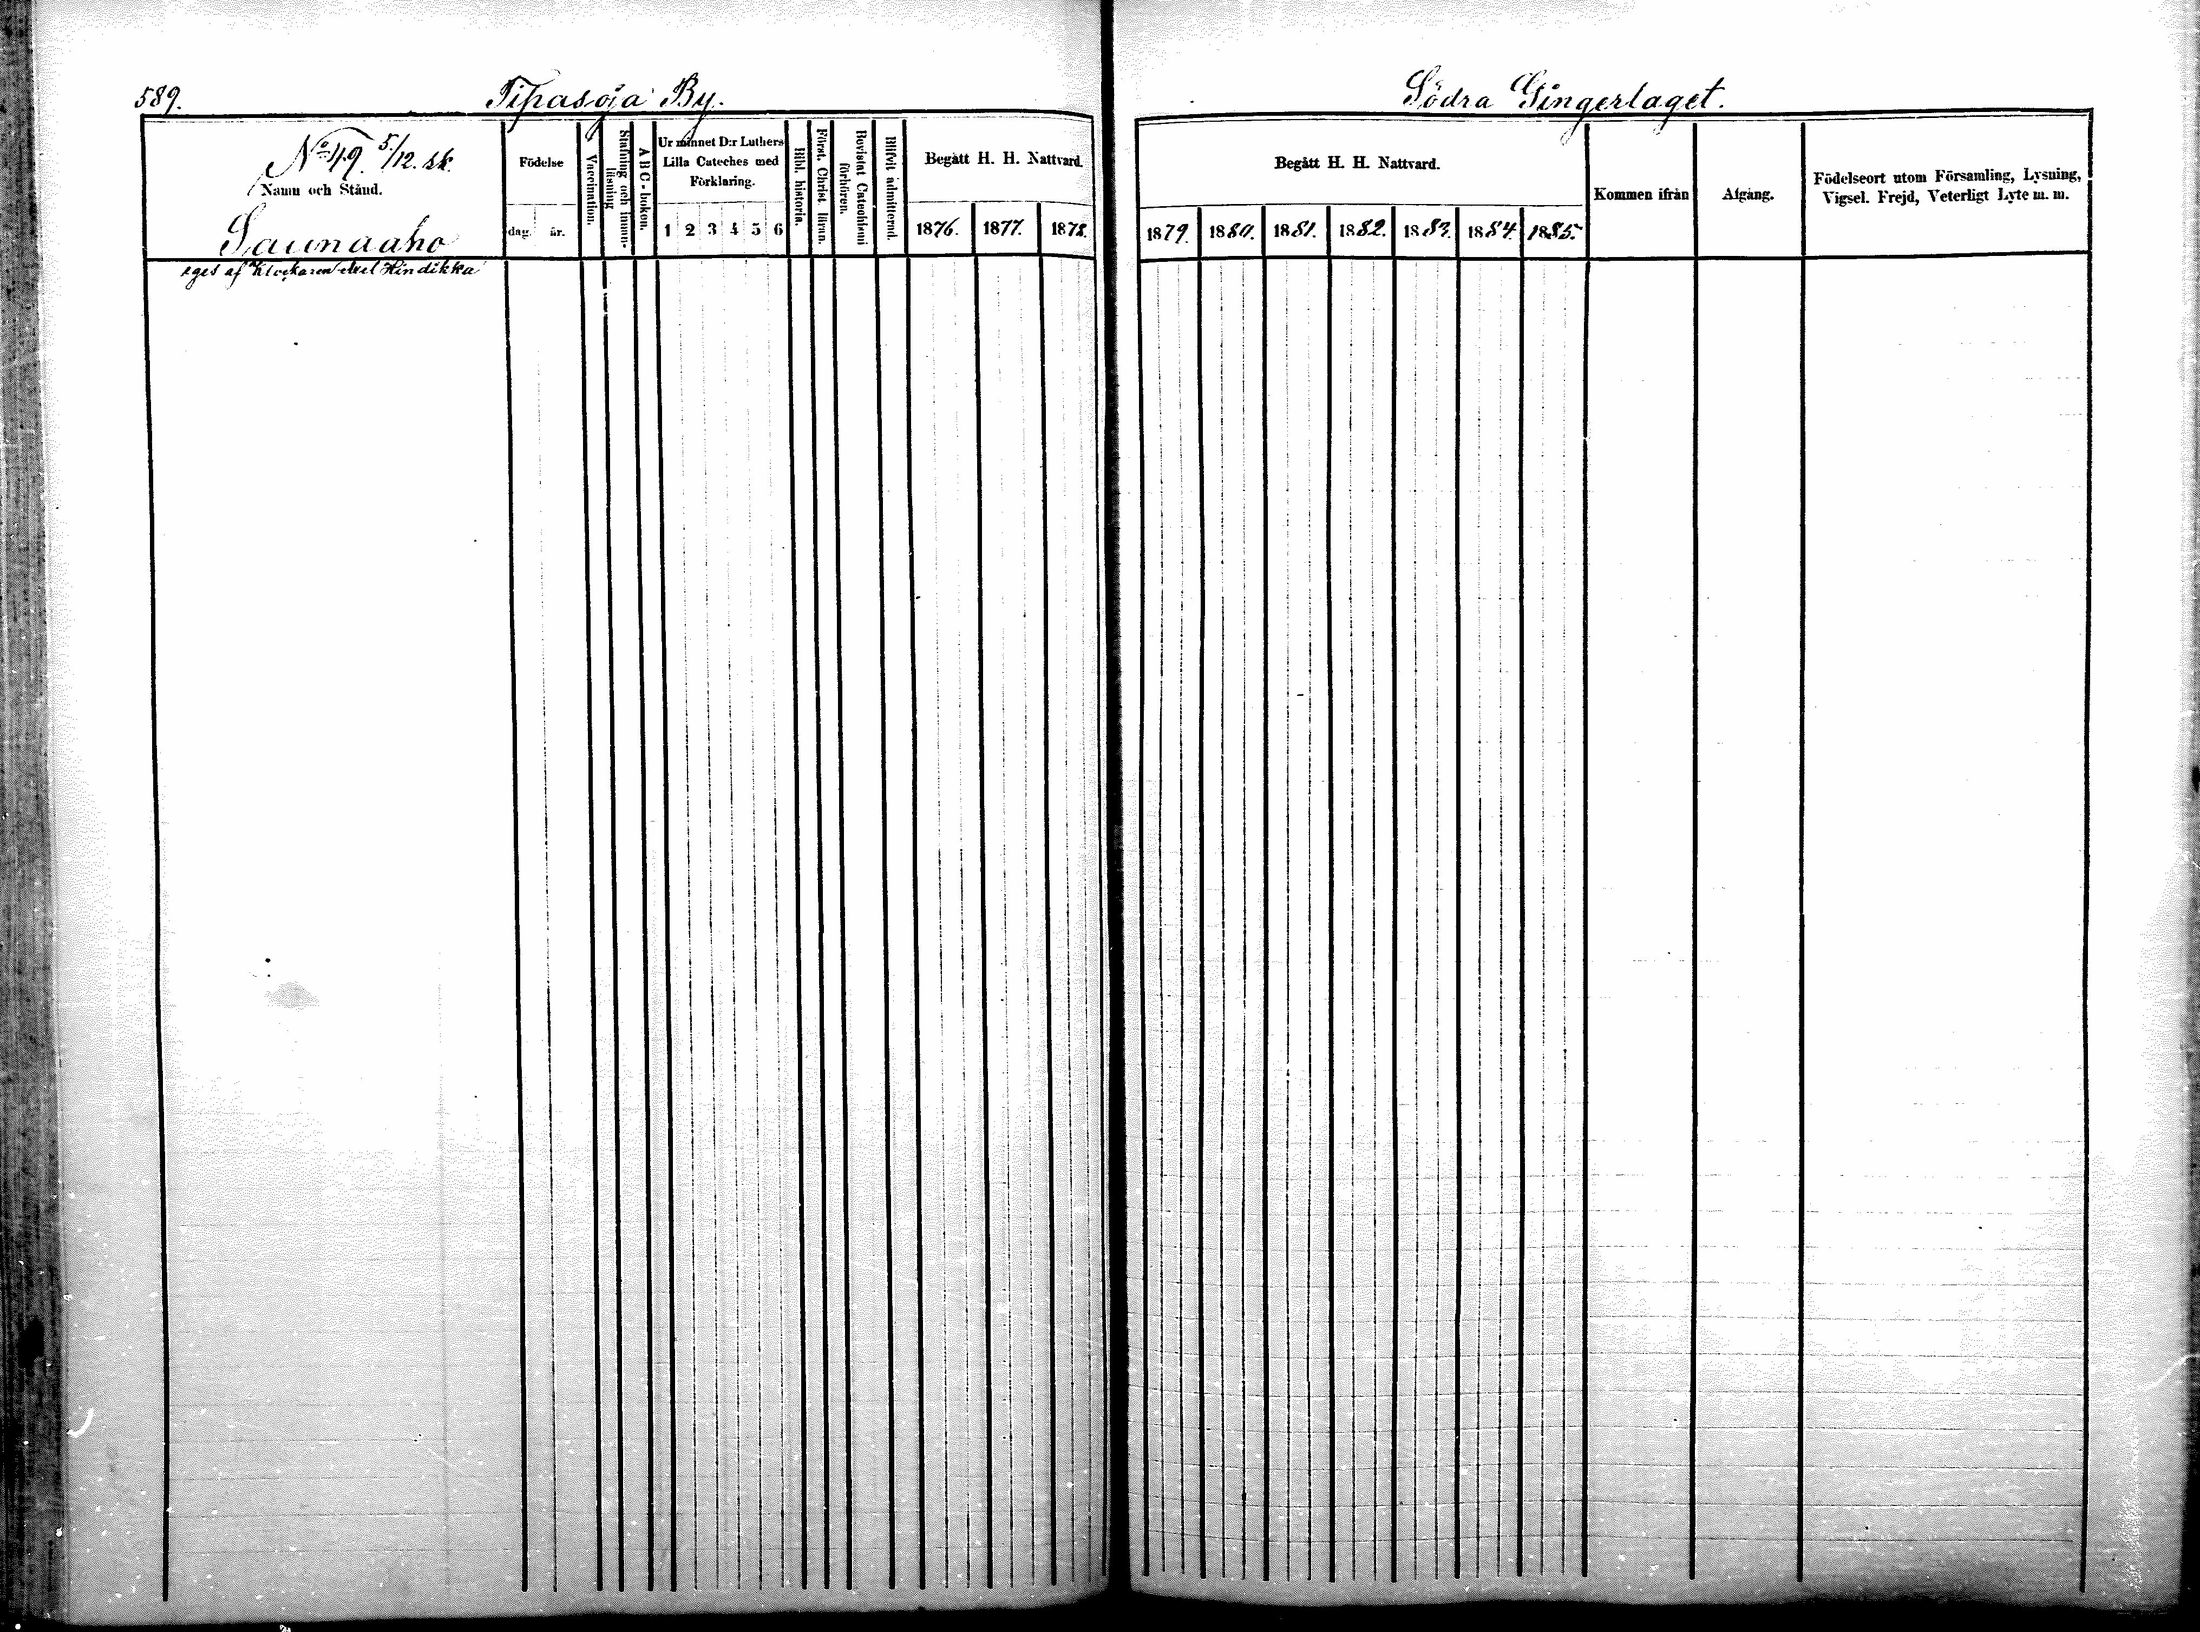 589.
Tipasoja By.
Södra Gingerlaget.
No 49. 5/12. sk.
Namn och Stånd.
Saunaaho
eges af Klockaren Axel Hindikka
Födelse
dag.
år.
Vaccination.
Stafning och innan-
läsning
A B C-boken.
Ur minnet D:r Luthers
Lilla Cateches med
Förklaring.
1 2 3 4 5 6
Bibl. historia.
Först. Christ. läran.
Bevistat Catechismi
förhören.
Blifvit admitterad.
Begått H. H. Nattvard.
1876. 1877. 1878.
Begått H. H. Nattvard.
1879. 1880. 1881. 1882. 1883. 1884. 1885.
Kommen ifrån
Afgång.
Födelseort utom Församling, Lysning,
Vigsel. Frejd, Veterligt Lyte m. m.